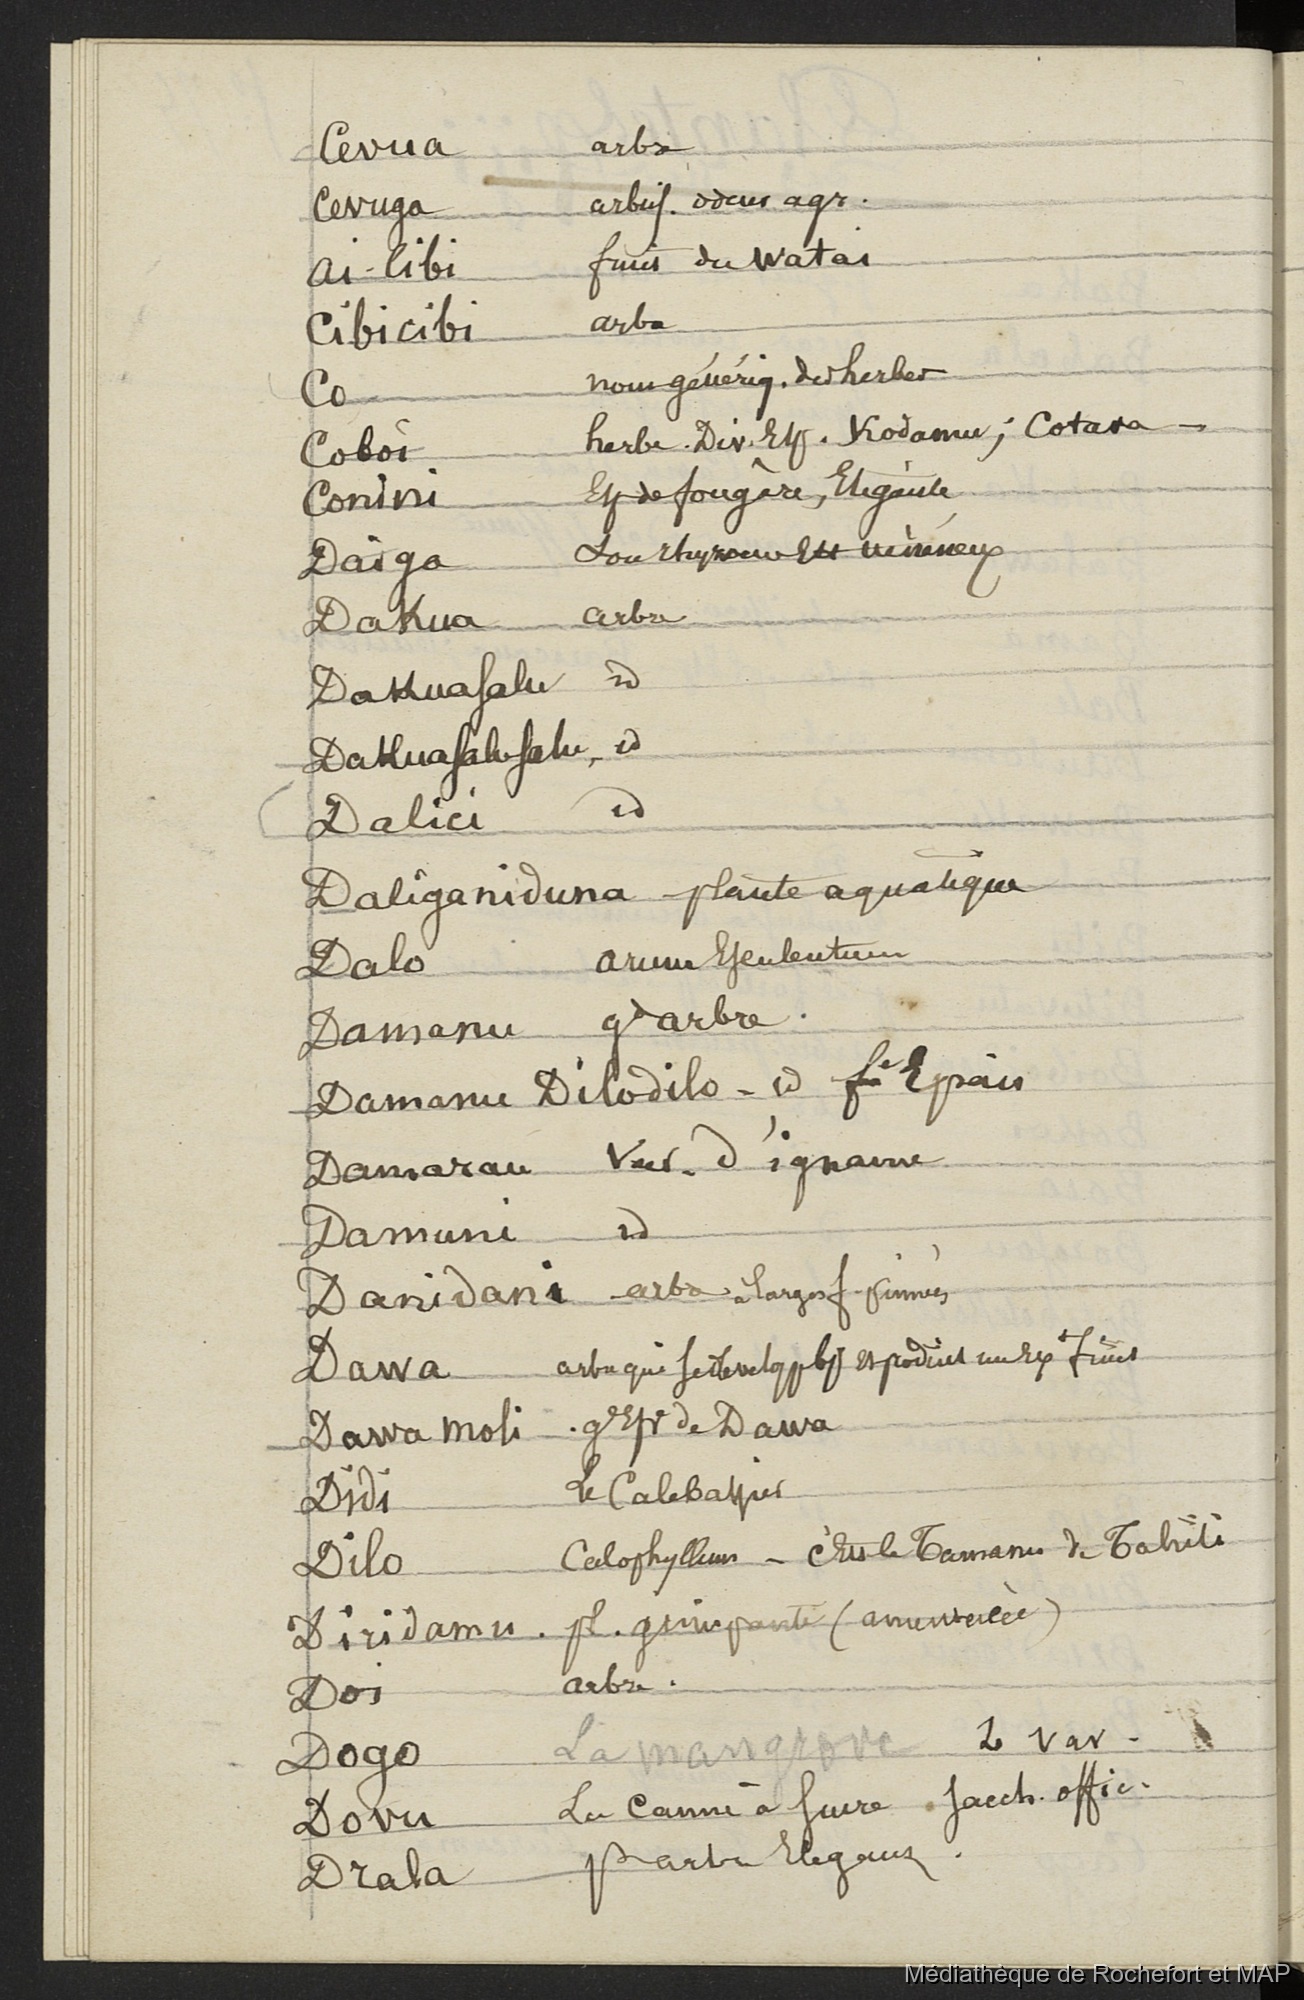 Cevua arbre
Cevuga arbuss. odeur agr.
ai-libi fruit du Watai
Cibicibi arbre
Co nom génériq. des herbes
Coboi herbe. Div. Esp. Kodamu; Cotava
Conini Esp de fougère, Elegante
Daiga Son rhyzome Est vénéneux
Dakua arbre
Dakuasalu id
Dakuasalusalu, id
Dalici id
Daligániduna plante aquatique
Dalo arum Esculentum
Damanu gd arbre.
Damanu Dilodilo - id fre Epais
Damarau Var. d'igname
Damuni id
Danidani arbre à larges f. pinnées
Dawa arbre qui se devel et produit un Ext fruit
Dawa moli gde Espe de Dawa
Didi Le Calebassier
Dilo Calophyllum - c'Est le Tamanu de Tahiti
Diridamu. pl. grimpante
Doi arbre.
Dogo La mangrove 2 var.
Dovu La canne à sucre Sacch. offic.
Drala pt arbre Elegant.
Médiathèque de Rochefort et MAP